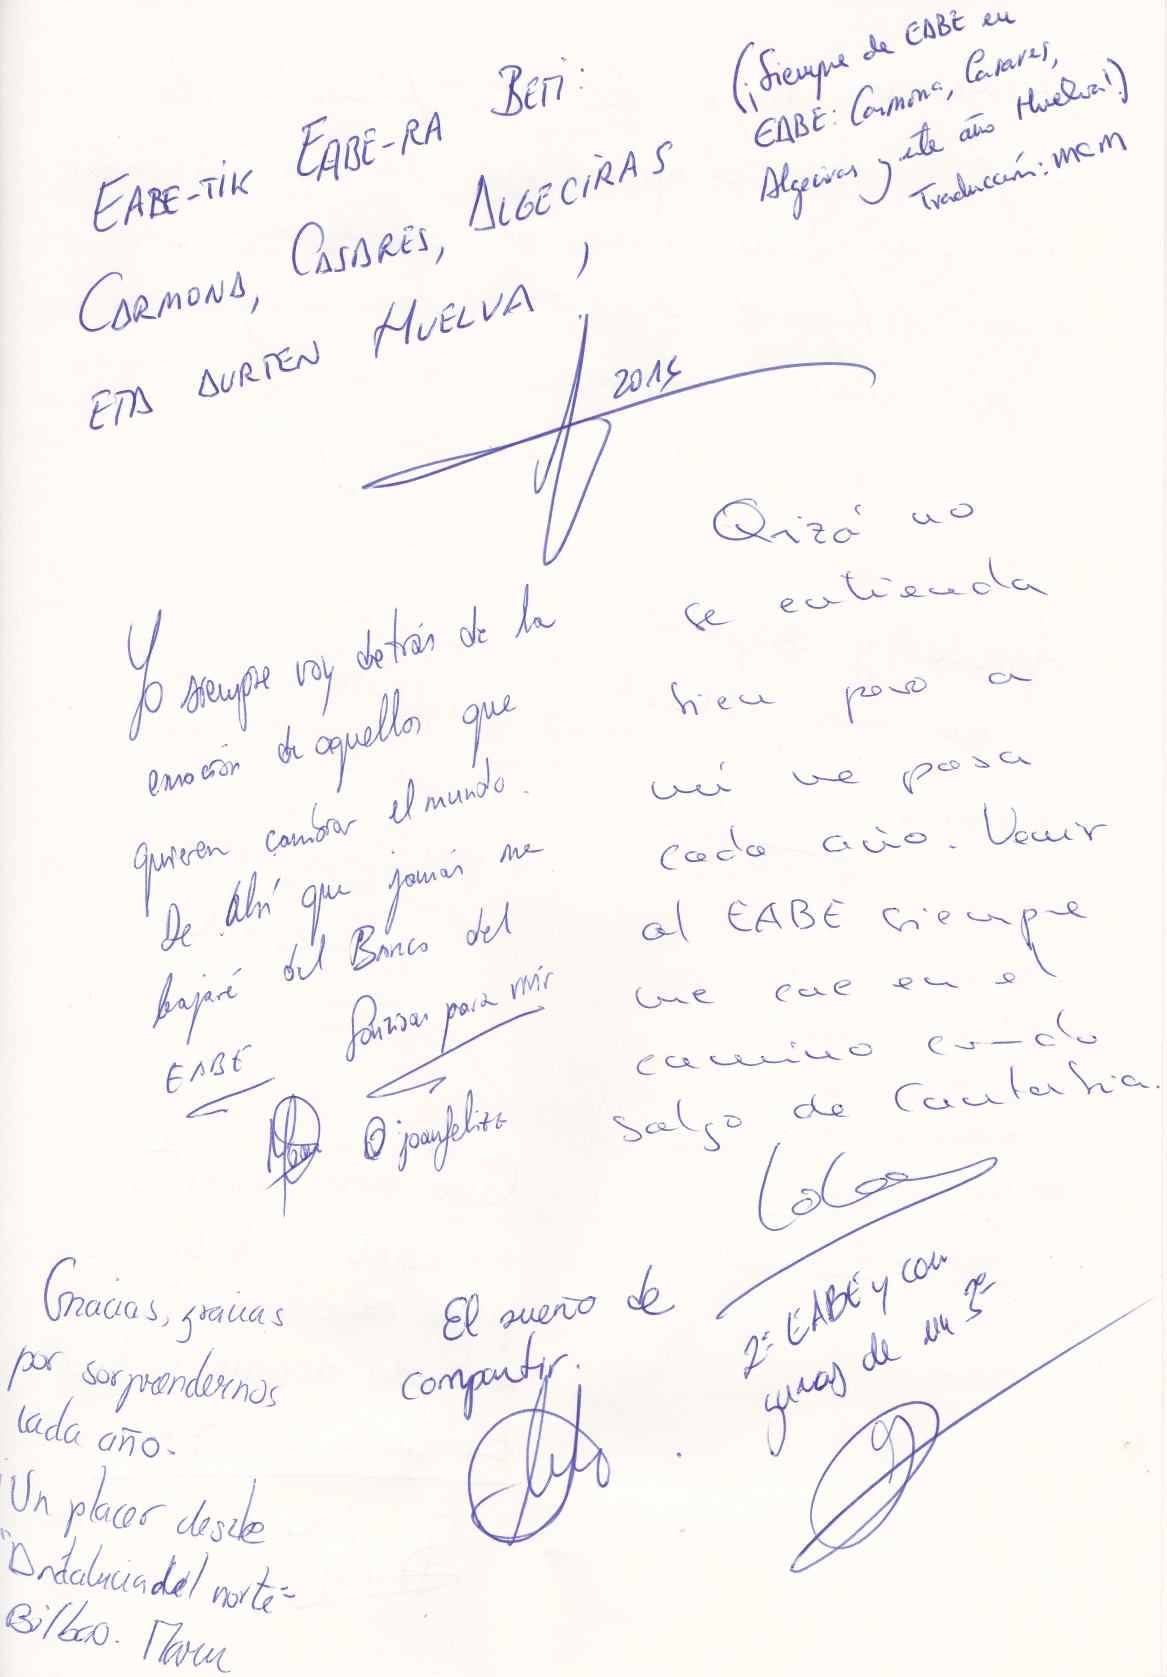 EABE-TIK EABE-RA BETI:
CARMONA, CASARES, ALGECIRAS
ETA AURTEN HUELVA,
2014
(¡Siempre de EABE en
EABE: Carmona, Casares,
Algeciras y este año Huelva!)
Traducción: MCM
Yo siempre voy detrás de la
emoción de aquellos que
quieren cambiar el mundo.
De ahí que jamás me
bajaré del Banco del
EABE
Sonrisas para vivir
@joanfelizz
Qizá no
se entienda
bien pero a
mí me pasa
cada año. Venir
al EABE siempre
me cae en el
camino cuando
salgo de Cantabria.
Gracias, gracias
por sorprendernos
cada año.
Un placer desde
"Andalucía del norte"=
Bilbao.
El sueño de
compartir.
2º EABE y con
ganas de un 3º